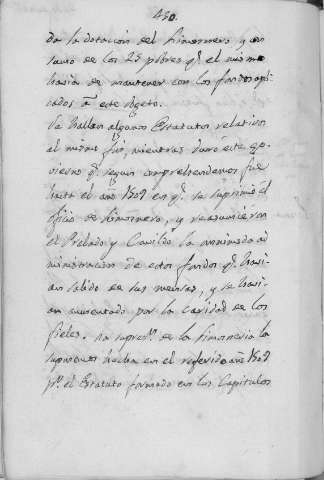 430.
da la dotacion del Limosnero, y con
sueno de los 25 pobres qe. el mismo
havia de mantener con los fondos apli
cados á este objeto.
Se hallan algunos Estatutos relativos
al mismo fin, mientras duró este go-
vierno qe. segun comprehendemos fue
hasta el año 1509 en qe. se suprimió el
oficio de Limosnero, y reasumieron
el Prelado y Cavildo la omnimoda ad
ministracion de estos fondos qe. havi-
an salido de sus mensas, y se havi-
an aumentado por la caridad de los
fieles. La supresn. de la Limosneria la
suponemos hecha en el referido año 1509
pr. el Estatuto formado en los Capitulos